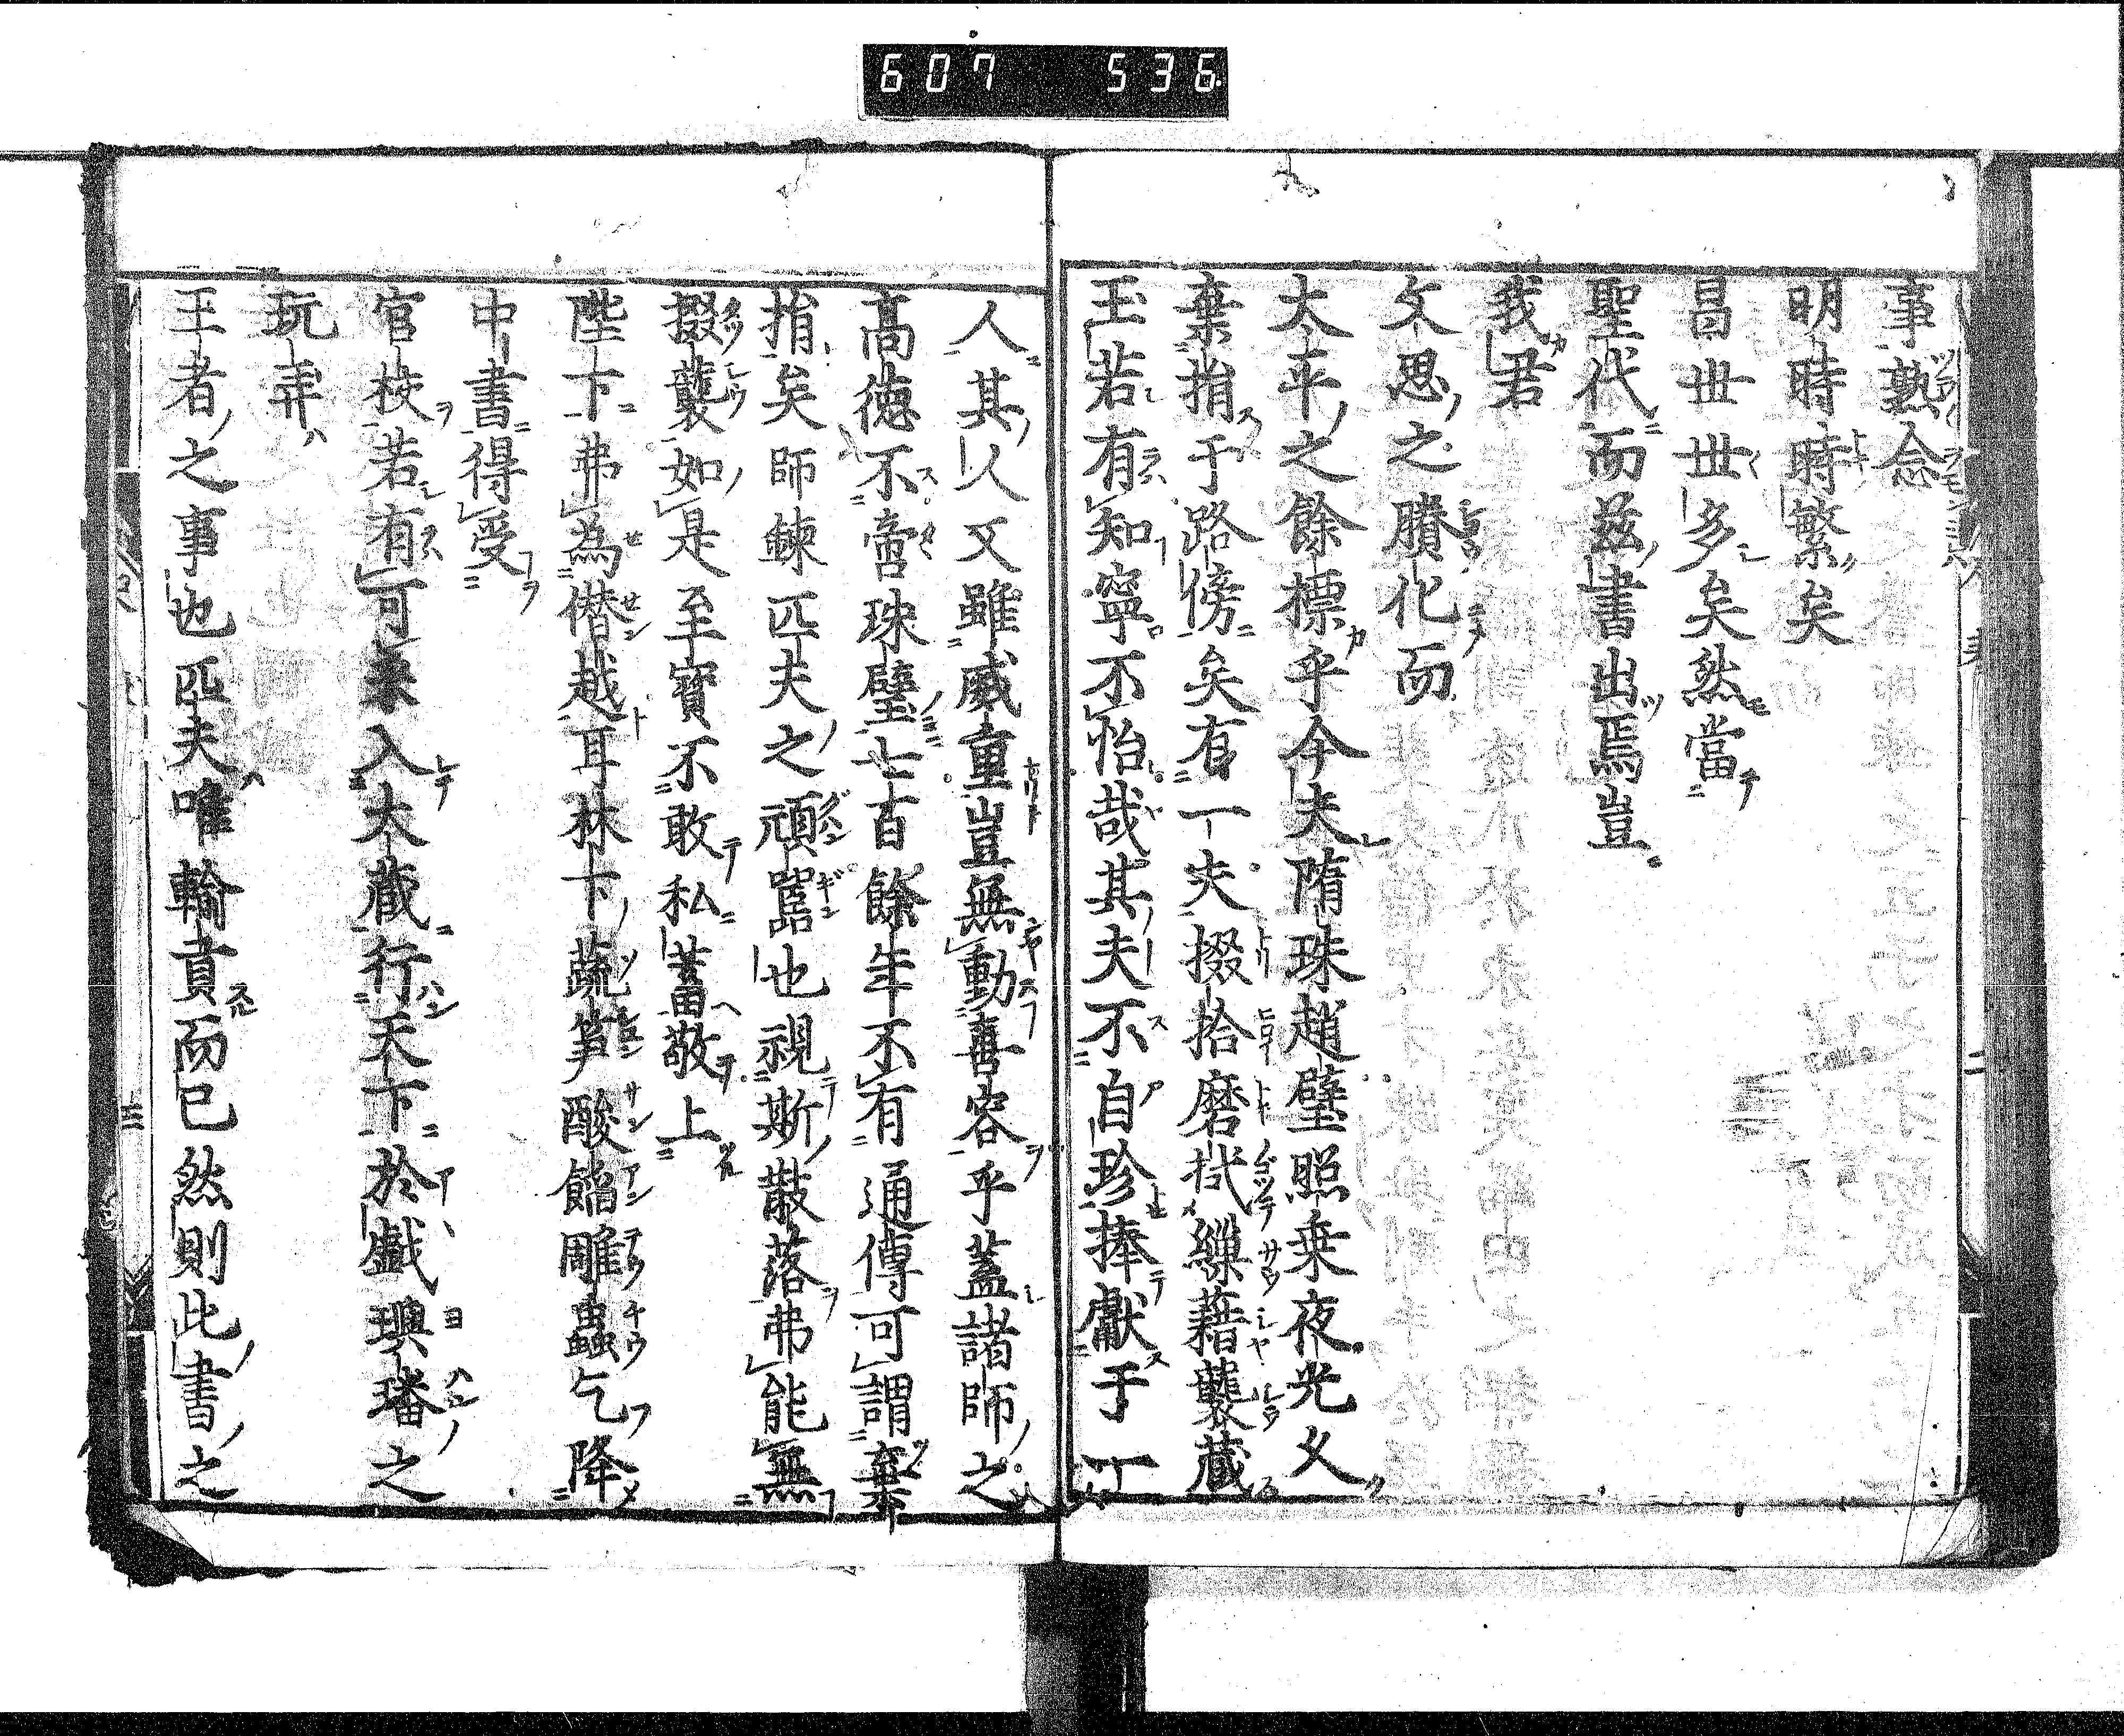 607 536
事熟念
明時時繁矣
昌世世多矣然當
聖代而茲書出焉豈
我君
文思之賸化而
太平之餘標乎今夫隋珠趙璧照乗夜光乂
棄捐于路傍矣有一夫掇拾磨拭繅藉襲蔵
玉若有知寧不怡哉其夫不自珍捧獻于一
人其人又雖威重豈無動善容乎蓋諸師之
高德不啻珠璧七百餘年不有通傳可謂棄
捐矣師錬匹夫之頑嚚也視斯散落弗能無
掇襲如是至寶不敢私蓄敬上
陛下弗為僭越耳林下蔬筍酸餡雕蟲乞降
中書得受
官校若有可采入大蔵行天下於戲璵璠之
玩弄
王者之事也匹夫唯輸貢而已然則此書之
二
三